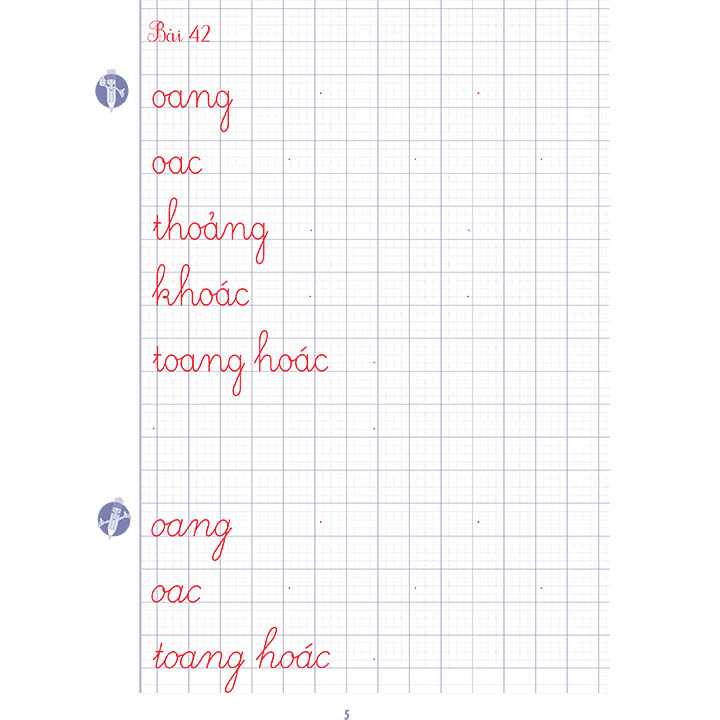 Bài 42
oang
oac
thoảng
khoác
toang hoác
oang
oac
toang hoác
5